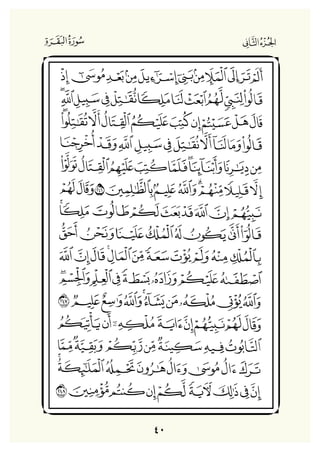 الجُزْءُ الثَّانِي سُورَةُ البَقَرَةِ
أَلَمْ تَرَ إِلَى ٱلْمَلَإِ مِنۢ بَنِىٓ إِسْرَٰٓءِيلَ مِنۢ بَعْدِ مُوسَىٰٓ إِذْ
قَالُوا۟ لِنَبِىٍّ لَّهُمُ ٱبْعَثْ لَنَا مَلِكًا نُّقَٰتِلْ فِى سَبِيلِ ٱللَّهِ ۖ
قَالَ هَلْ عَسَيْتُمْ إِن كُتِبَ عَلَيْكُمُ ٱلْقِتَالُ أَلَّا تُقَٰتِلُوا۟ ۖ
قَالُوا۟ وَمَا لَنَآ أَلَّا نُقَٰتِلَ فِى سَبِيلِ ٱللَّهِ وَقَدْ أُخْرِجْنَا
مِن دِيَٰرِنَا وَأَبْنَآئِنَا ۖ فَلَمَّا كُتِبَ عَلَيْهِمُ ٱلْقِتَالُ تَوَلَّوْا۟
إِلَّا قَلِيلًا مِّنْهُمْ ۗ وَٱللَّهُ عَلِيمٌۢ بِٱلظَّٰلِمِينَ ٢٤٦ وَقَالَ لَهُمْ
نَبِيُّهُمْ إِنَّ ٱللَّهَ قَدْ بَعَثَ لَكُمْ طَالُوتَ مَلِكًا ۚ
قَالُوٓا۟ أَنَّىٰ يَكُونُ لَهُ ٱلْمُلْكُ عَلَيْنَا وَنَحْنُ أَحَقُّ
بِٱلْمُلْكِ مِنْهُ وَلَمْ يُؤْتَ سَعَةً مِّنَ ٱلْمَالِ ۚ قَالَ إِنَّ ٱللَّهَ
ٱصْطَفَىٰهُ عَلَيْكُمْ وَزَادَهُۥ بَسْطَةً فِى ٱلْعِلْمِ وَٱلْجِسْمِ ۖ
وَٱللَّهُ يُؤْتِى مُلْكَهُۥ مَن يَشَآءُ ۚ وَٱللَّهُ وَٰسِعٌ عَلِيمٌ ٢٤٧
وَقَالَ لَهُمْ نَبِيُّهُمْ إِنَّ ءَايَةَ مُلْكِهِۦٓ أَن يَأْتِيَكُمُ
ٱلتَّابُوتُ فِيهِ سَكِينَةٌ مِّن رَّبِّكُمْ وَبَقِيَّةٌ مِّمَّا
تَرَكَ ءَالُ مُوسَىٰ وَءَالُ هَٰرُونَ تَحْمِلُهُ ٱلْمَلَٰٓئِكَةُ ۚ
إِنَّ فِى ذَٰلِكَ لَءَايَةً لَّكُمْ إِن كُنتُم مُّؤْمِنِينَ ٢٤٨
٤٠